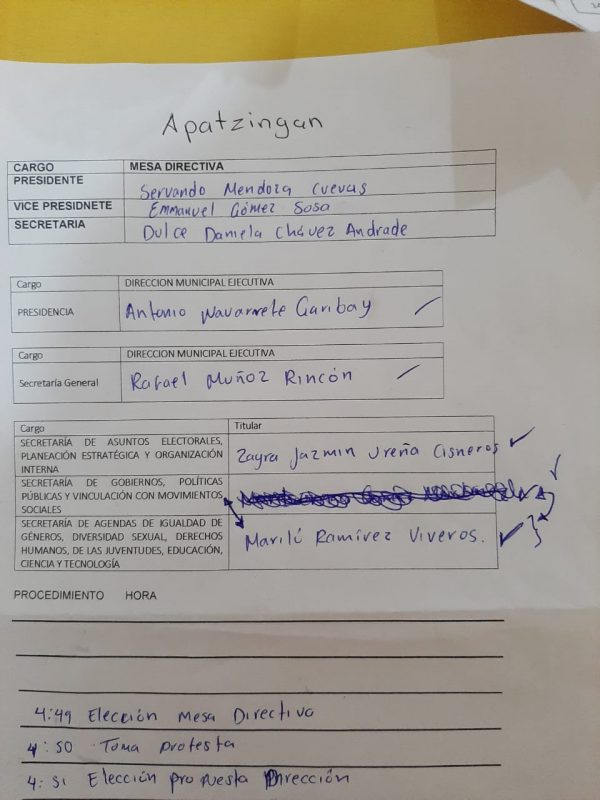 Apatzingan
CARGO MESA DIRECTIVA
PRESIDENTE Servando Mendoza Cuevas
VICE PRESIDNETE Emmanuel Gómez Sosa
SECRETARIA Dulce Daniela Chávez Andrade
Cargo DIRECCION MUNICIPAL EJECUTIVA
PRESIDENCIA Antonio Navarrete Garibay
Cargo DIRECCION MUNICIPAL EJECUTIVA
Secretaría General Rafael Muñoz Rincón
Cargo Titular
SECRETARÍA DE ASUNTOS ELECTORALES,
PLANEACIÓN ESTRATÉGICA Y ORGANIZACIÓN
INTERNA
Zayra Jazmin Ureña Cisneros
SECRETARÍA DE GOBIERNOS, POLÍTICAS
PÚBLICAS Y VINCULACIÓN CON MOVIMIENTOS
SOCIALES
SECRETARÍA DE AGENDAS DE IGUALDAD DE
GÉNEROS, DIVERSIDAD SEXUAL, DERECHOS
HUMANOS, DE LAS JUVENTUDES, EDUCACIÓN,
CIENCIA Y TECNOLOGÍA
Marilú Ramírez Viveros.
PROCEDIMIENTO HORA
4:49 Elección Mesa Directiva
4:50 Toma protesta
4:51 Elección propuesta Dirección